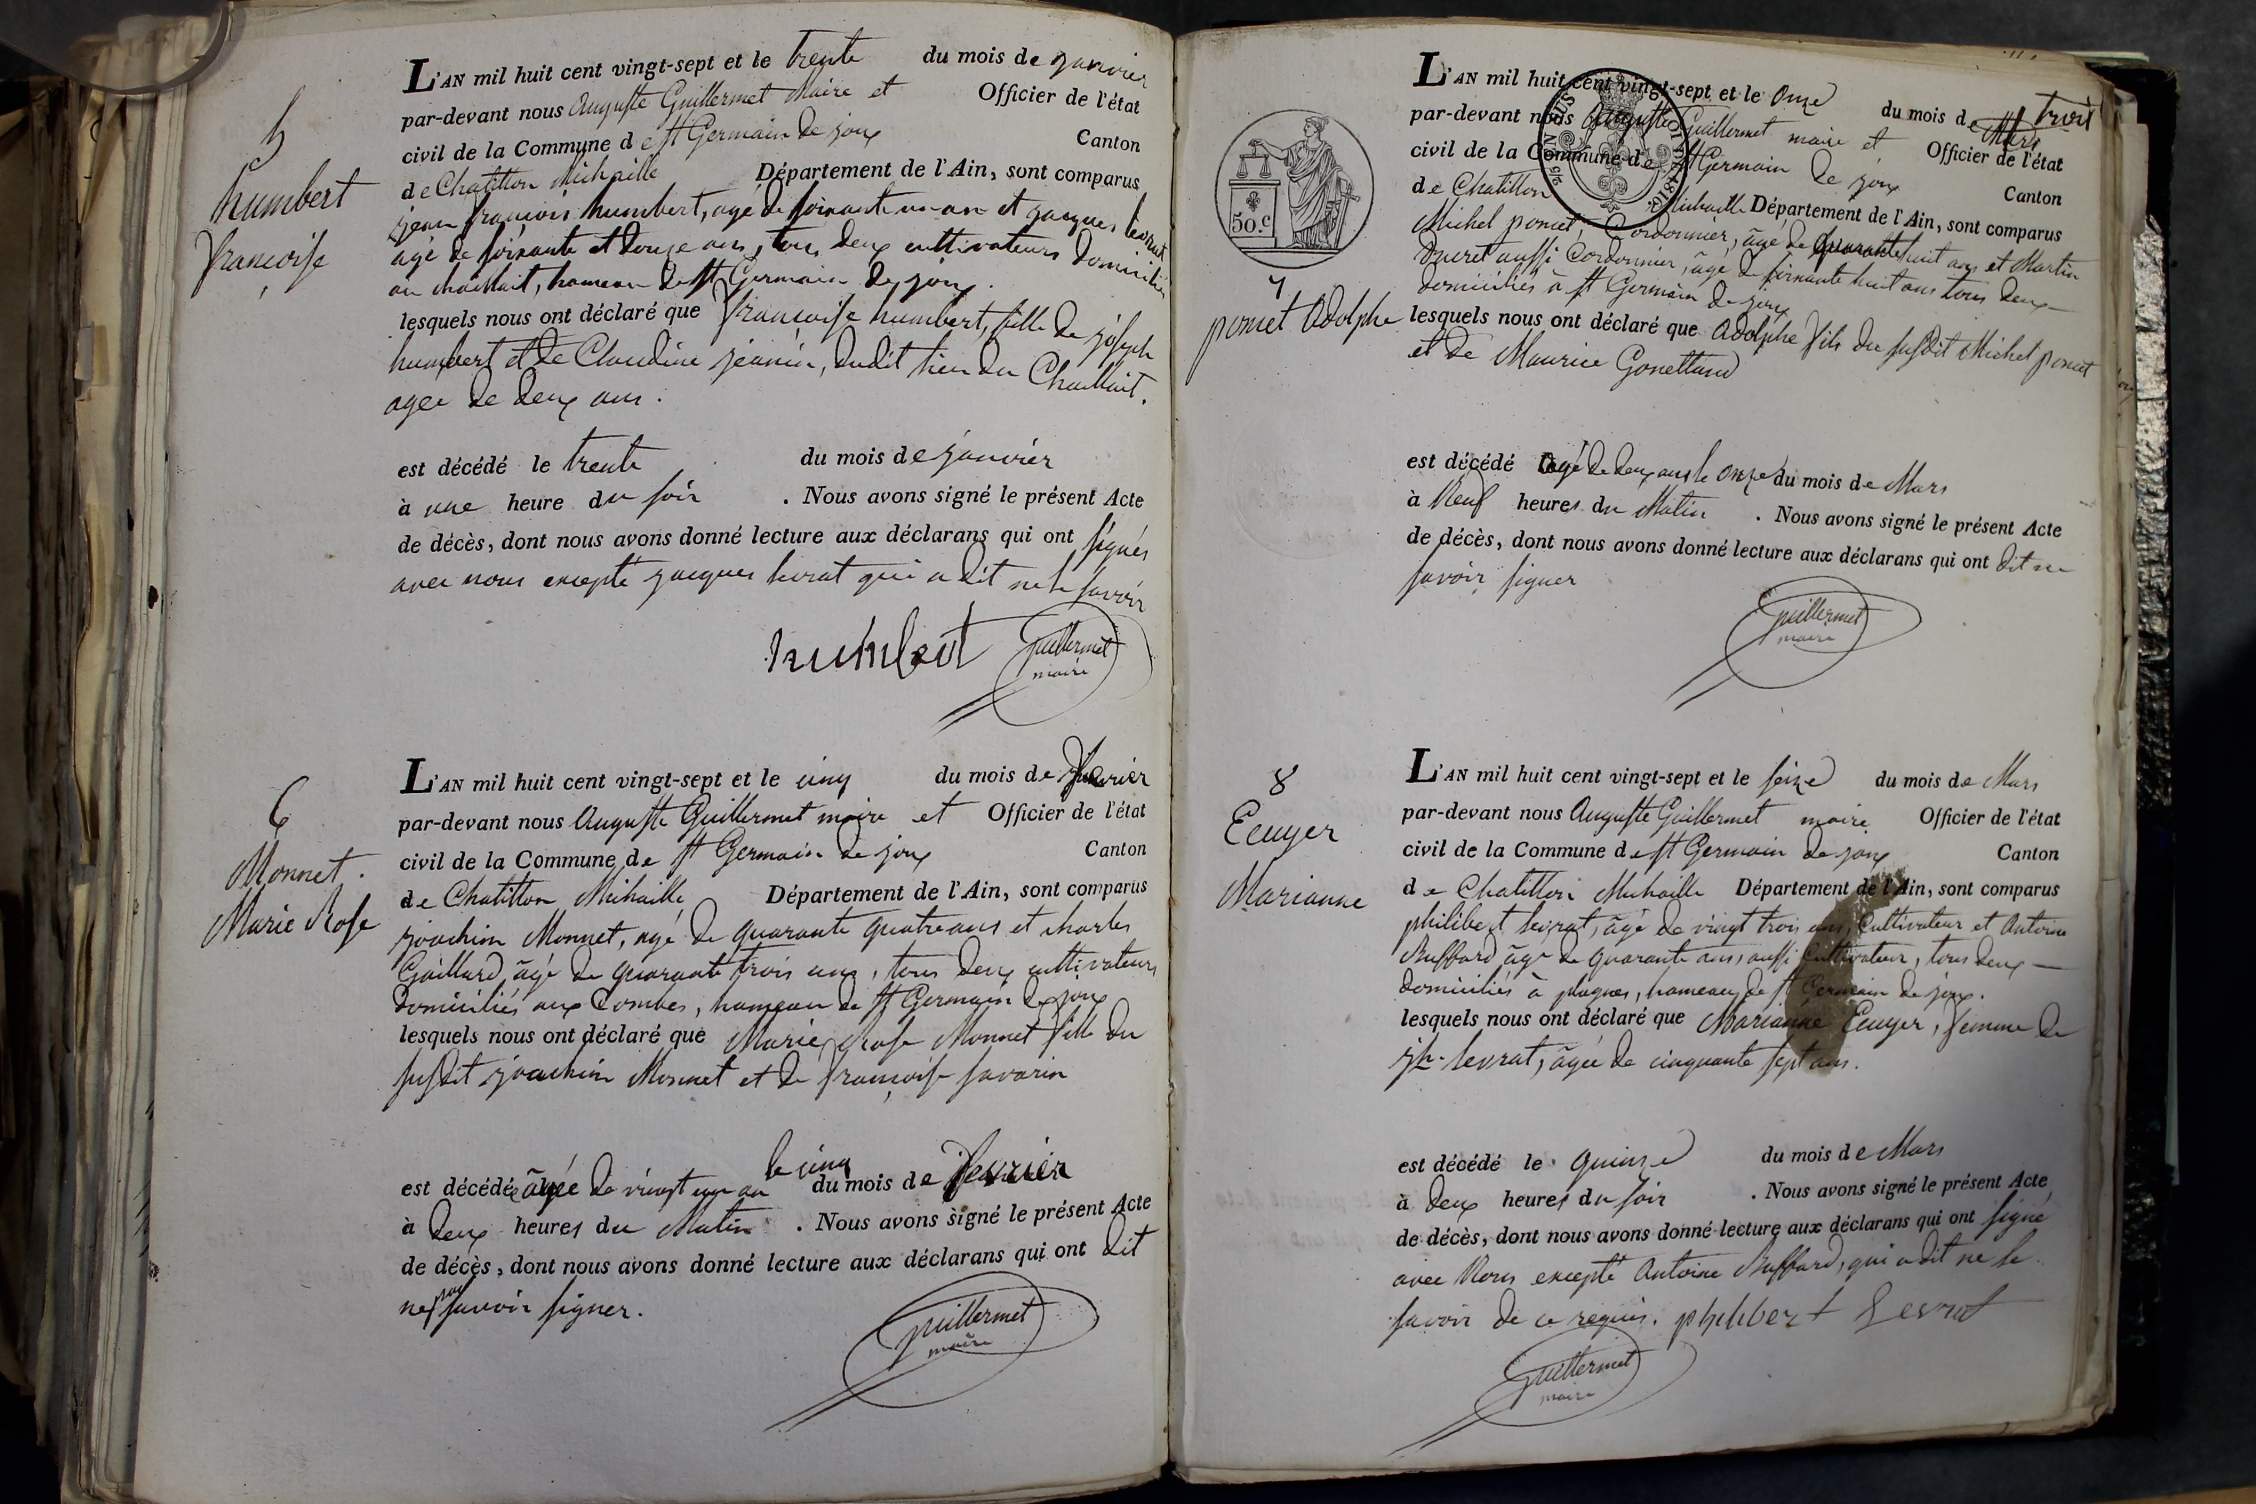 5
humbert
françoise
L'AN mil huit cent vingt-sept et le trente du mois de janvier
par-devant nous Auguste Guillermet Maire et Officier de l'état
civil de la Commune de St Germain de joux Canton
de Chatillon Michaille Département de l'Ain, sont comparus
jean françois humbert, agé de soixante un an et jacques levrat
agé de soixante et douze ans, tous deux cultivateurs domiciliés
au , hameau de St Germain de joux.
lesquels nous ont déclaré que françoise humbert, fille de joseph
humbert et de Claudine jeanin, dudit lieu du
agée de deux ans.
est décédé le trente du mois de janvier
à une heure du soir . Nous avons signé le présent Acte
de décès, dont nous avons donné lecture aux déclarans qui ont signés
avec nous excepté jacques levrat qui a dit ne le savoir
humbert Guillermet
maire
6
Monnet.
Marie Rose
L'AN mil huit cent vingt-sept et le cinq du mois de fevrier
par-devant nous Auguste Guillermet maire et Officier de l'état
civil de la Commune de St Germain de joux Canton
de Chatillon Michaille Département de l'Ain, sont comparus
joachim Monnet, agé de quarante quatre ans et charles
Gaillard, âgé de quarante trois ans, tous deux cultivateurs
domiciliés aux Combes, hameau de St Germain de joux
lesquels nous ont déclaré que Marie Rose Monnet fille du
susdit joachim Monnet et de françoise savarin
est décédée âgée de vingt un an le cinq du mois de fevrier
à deux heures du Matin . Nous avons signé le présent Acte
de décès, dont nous avons donné lecture aux déclarans qui ont dit
ne pas savoir signer.
Guillermet
maire
50.c
7
poncet Adolphe
L'AN mil huit cent vingt-sept et le onze du mois de Mars
par-devant nous Auguste Guillermet maire et Officier de l'état
civil de la Commune de St Germain de joux Canton
de Chatillon Michaille Département de l'Ain, sont comparus
Michel poncet, Cordonnier, âgé de quarante huit ans et Martin
Ducret aussi Cordonnier, âgé de soixante huit ans tous deux
domiciliés à St Germain de joux
lesquels nous ont déclaré que Adolphe fils du susdit Michel poncet
et de Maurice
est décédé agé de deux ans le onze du mois de Mars
à Neuf heures du Matin . Nous avons signé le présent Acte
de décès, dont nous avons donné lecture aux déclarans qui ont dit ne
savoir signer
Guillermet
maire
8
Ecuyer
Marianne
L'AN mil huit cent vingt-sept et le seize du mois de Mars
par-devant nous Auguste Guillermet maire Officier de l'état
civil de la Commune de St Germain de joux Canton
de Chatillon Michaille Département de l'Ain, sont comparus
philibert levrat, âgé de vingt trois ans, Cultivateur et Antoine
Buffard âgé de quarante ans, aussi Cultivateur, tous deux
domiciliés à plagnes, hameau de St Germain de joux.
lesquels nous ont déclaré que Marianne Ecuyer, femme de
jh. levrat, âgée de cinquante sept ans.
est décédé le quinze du mois de Mars
à deux heures du soir . Nous avons signé le présent Acte
de décès, dont nous avons donné lecture aux déclarans qui ont signé
avec Nous excepté Antoine Buffard, qui a dit ne le
savoir de ce requis. philibert Levrat
Guillermet
maire